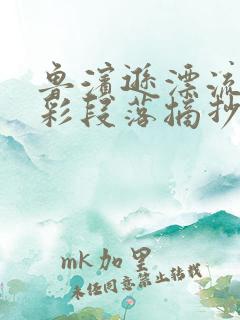 鲁滨逊漂流
彩段落摘抄
mk加里
未经同意禁止转载